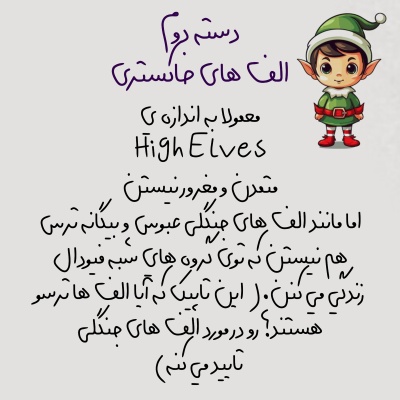 دسته دوم
الف های خاکستری
معمولا به اندازه ی
High Elves
متمدن و مغرور نیستن
اما مانند الف های جنگلی عبوس و بیگانه ترس
هم نیستن که توی گروه های شبه فئودال
زندگی می کنن. ( این تاپیک که آیا الف ها ترسو
هستند؟ رو در مورد الف های جنگلی
تایید می کنه)